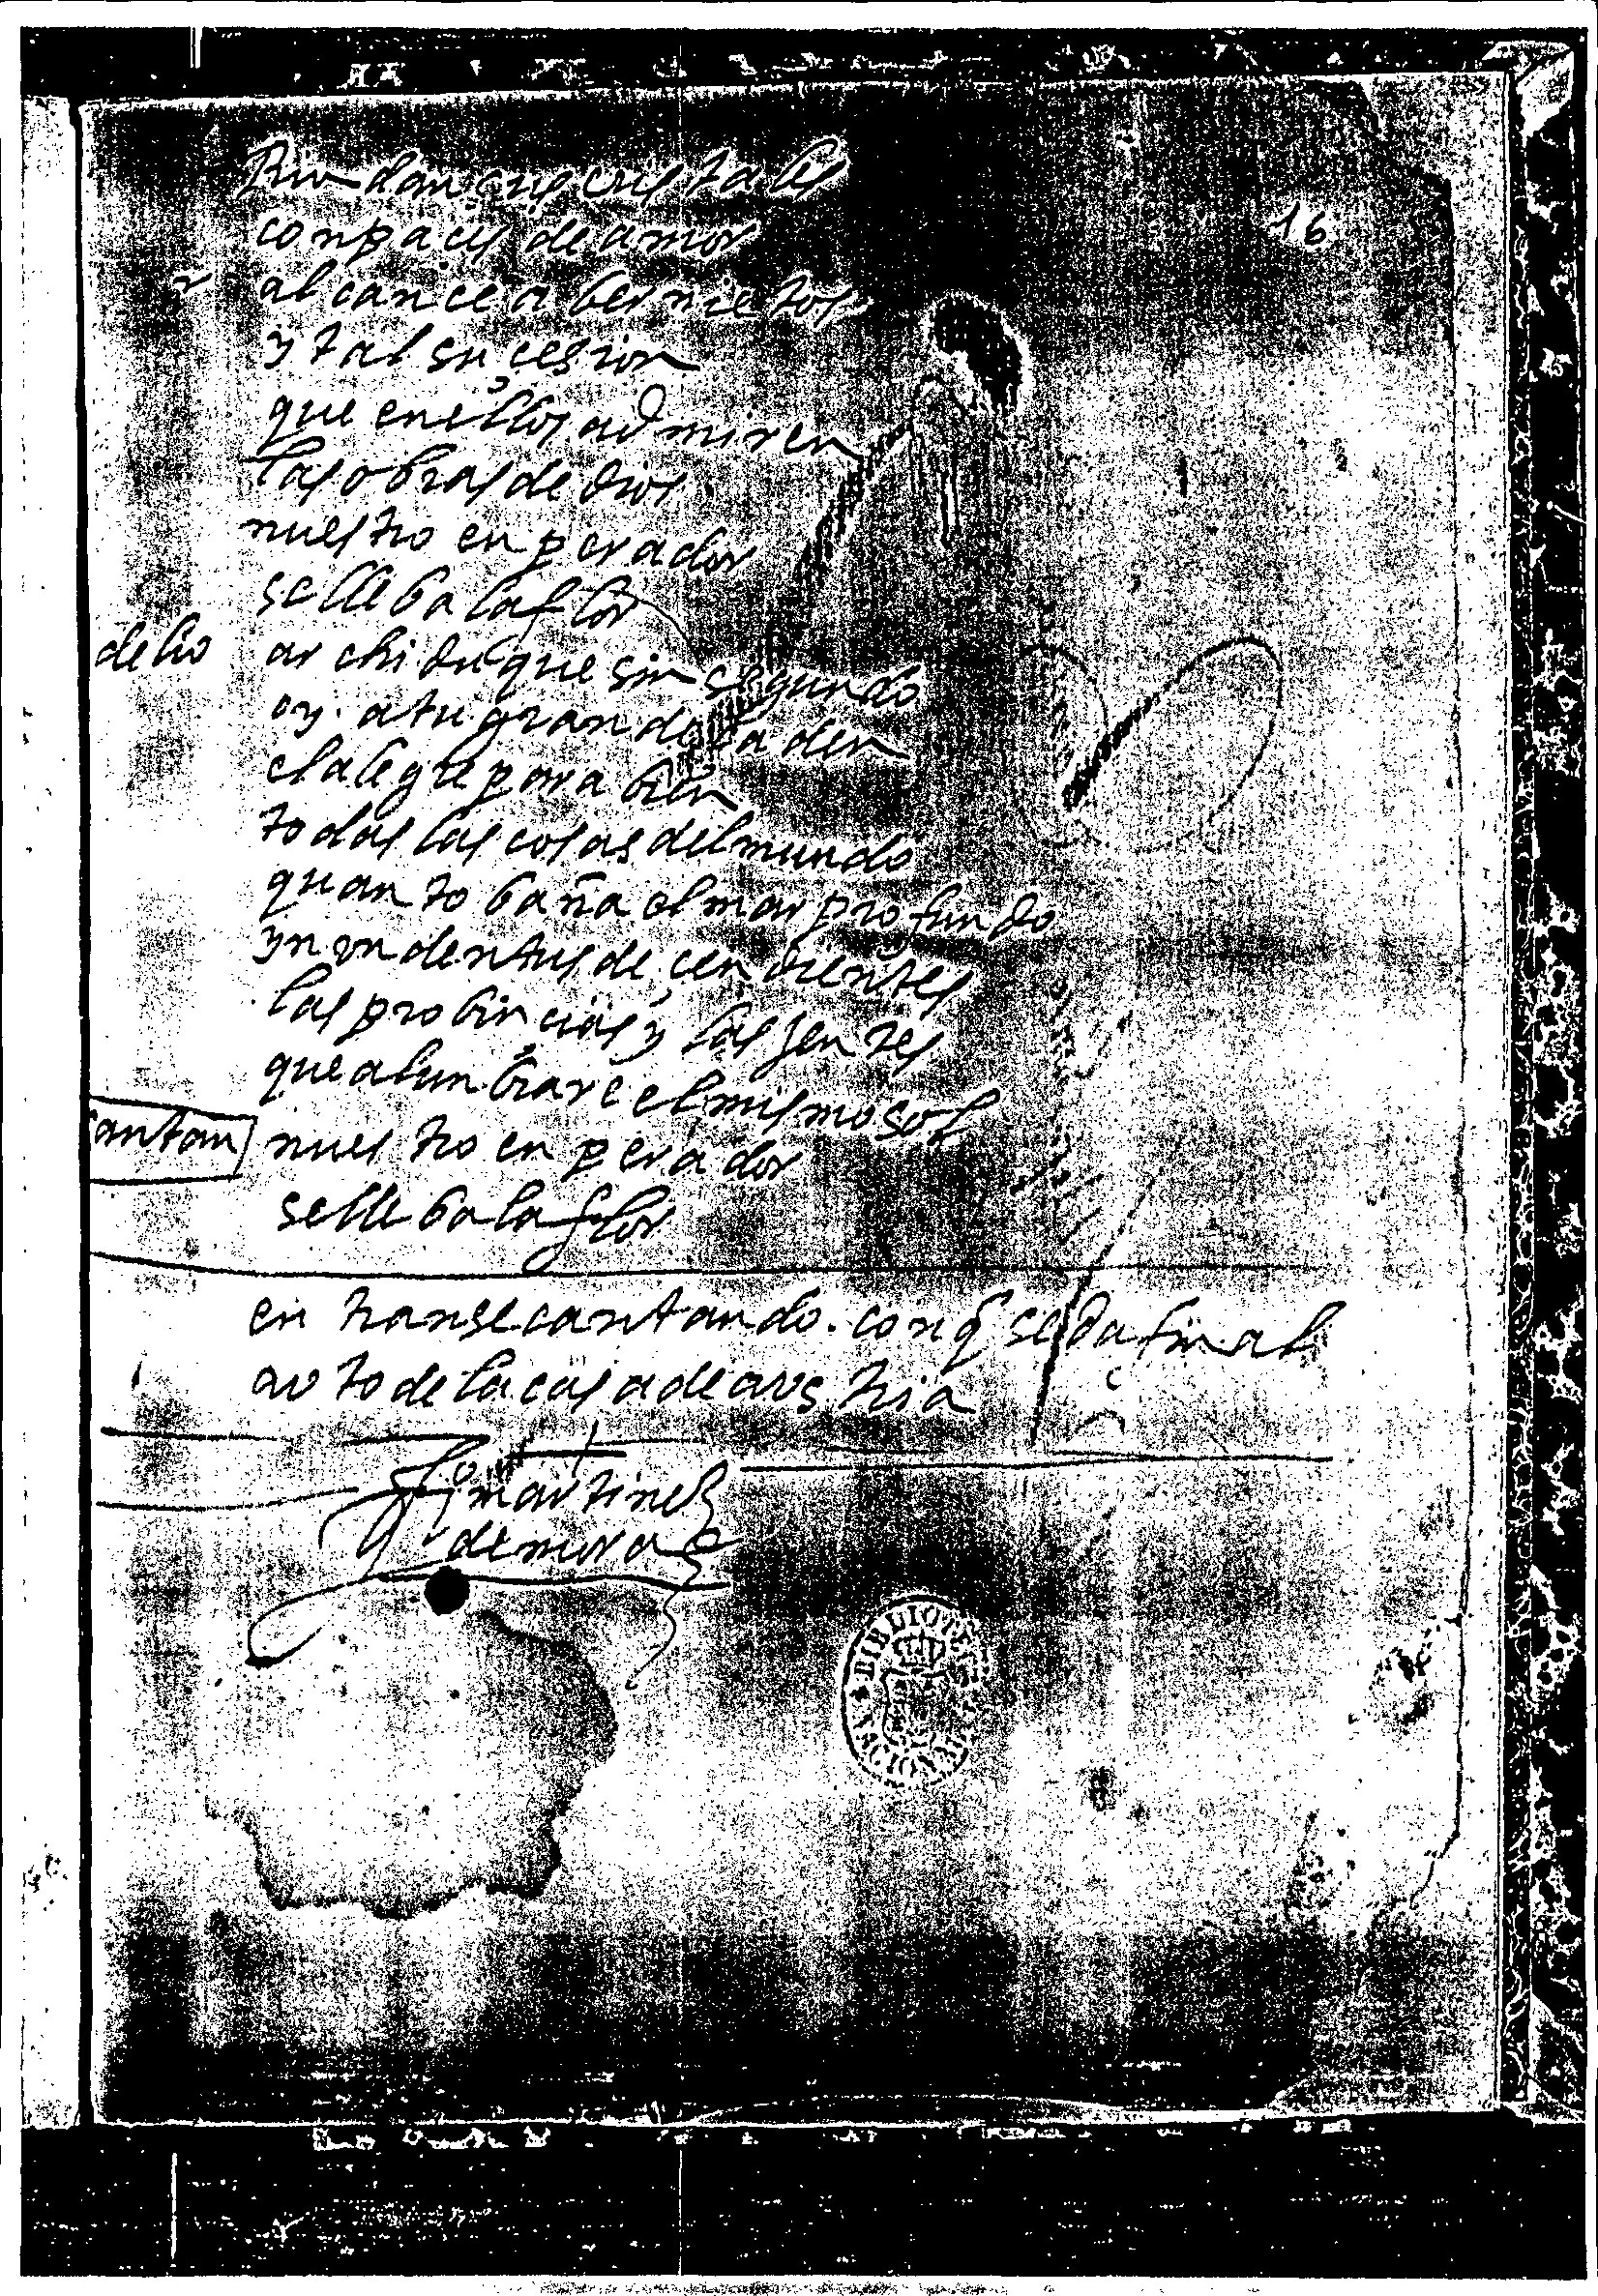 16
Rindan sus cristales
con paçes de amor
alcance a ber nietos
y tal suçesion
que en ellos admiren
las obras de dios
nuestro enperador
se lleba la flor
delio archiduque sin segundo
oy a tu grandeça den
el alegre para bien
todas las cosas del mundo
quanto baña el mar profundo
ynunden tus deçendientes
las probinçias y las jentes
que alunbrare el mismo sol
cantan nuestro enperador
se lleba la flor
entranse cantando. con q se da fin al
auto de la casa de austria
martinez
de mora
BIBLIOTECA NACIONAL